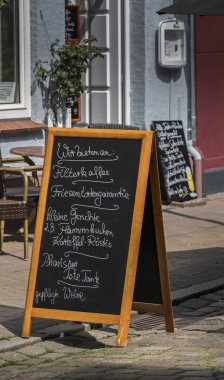 Wir bieten an:
Filterkaffee
Friesentortengarantie
kleine Gerichte
z.B. Flammkuchen
Kartoffel-Röstis
Tote Tante
gepflegte Weine